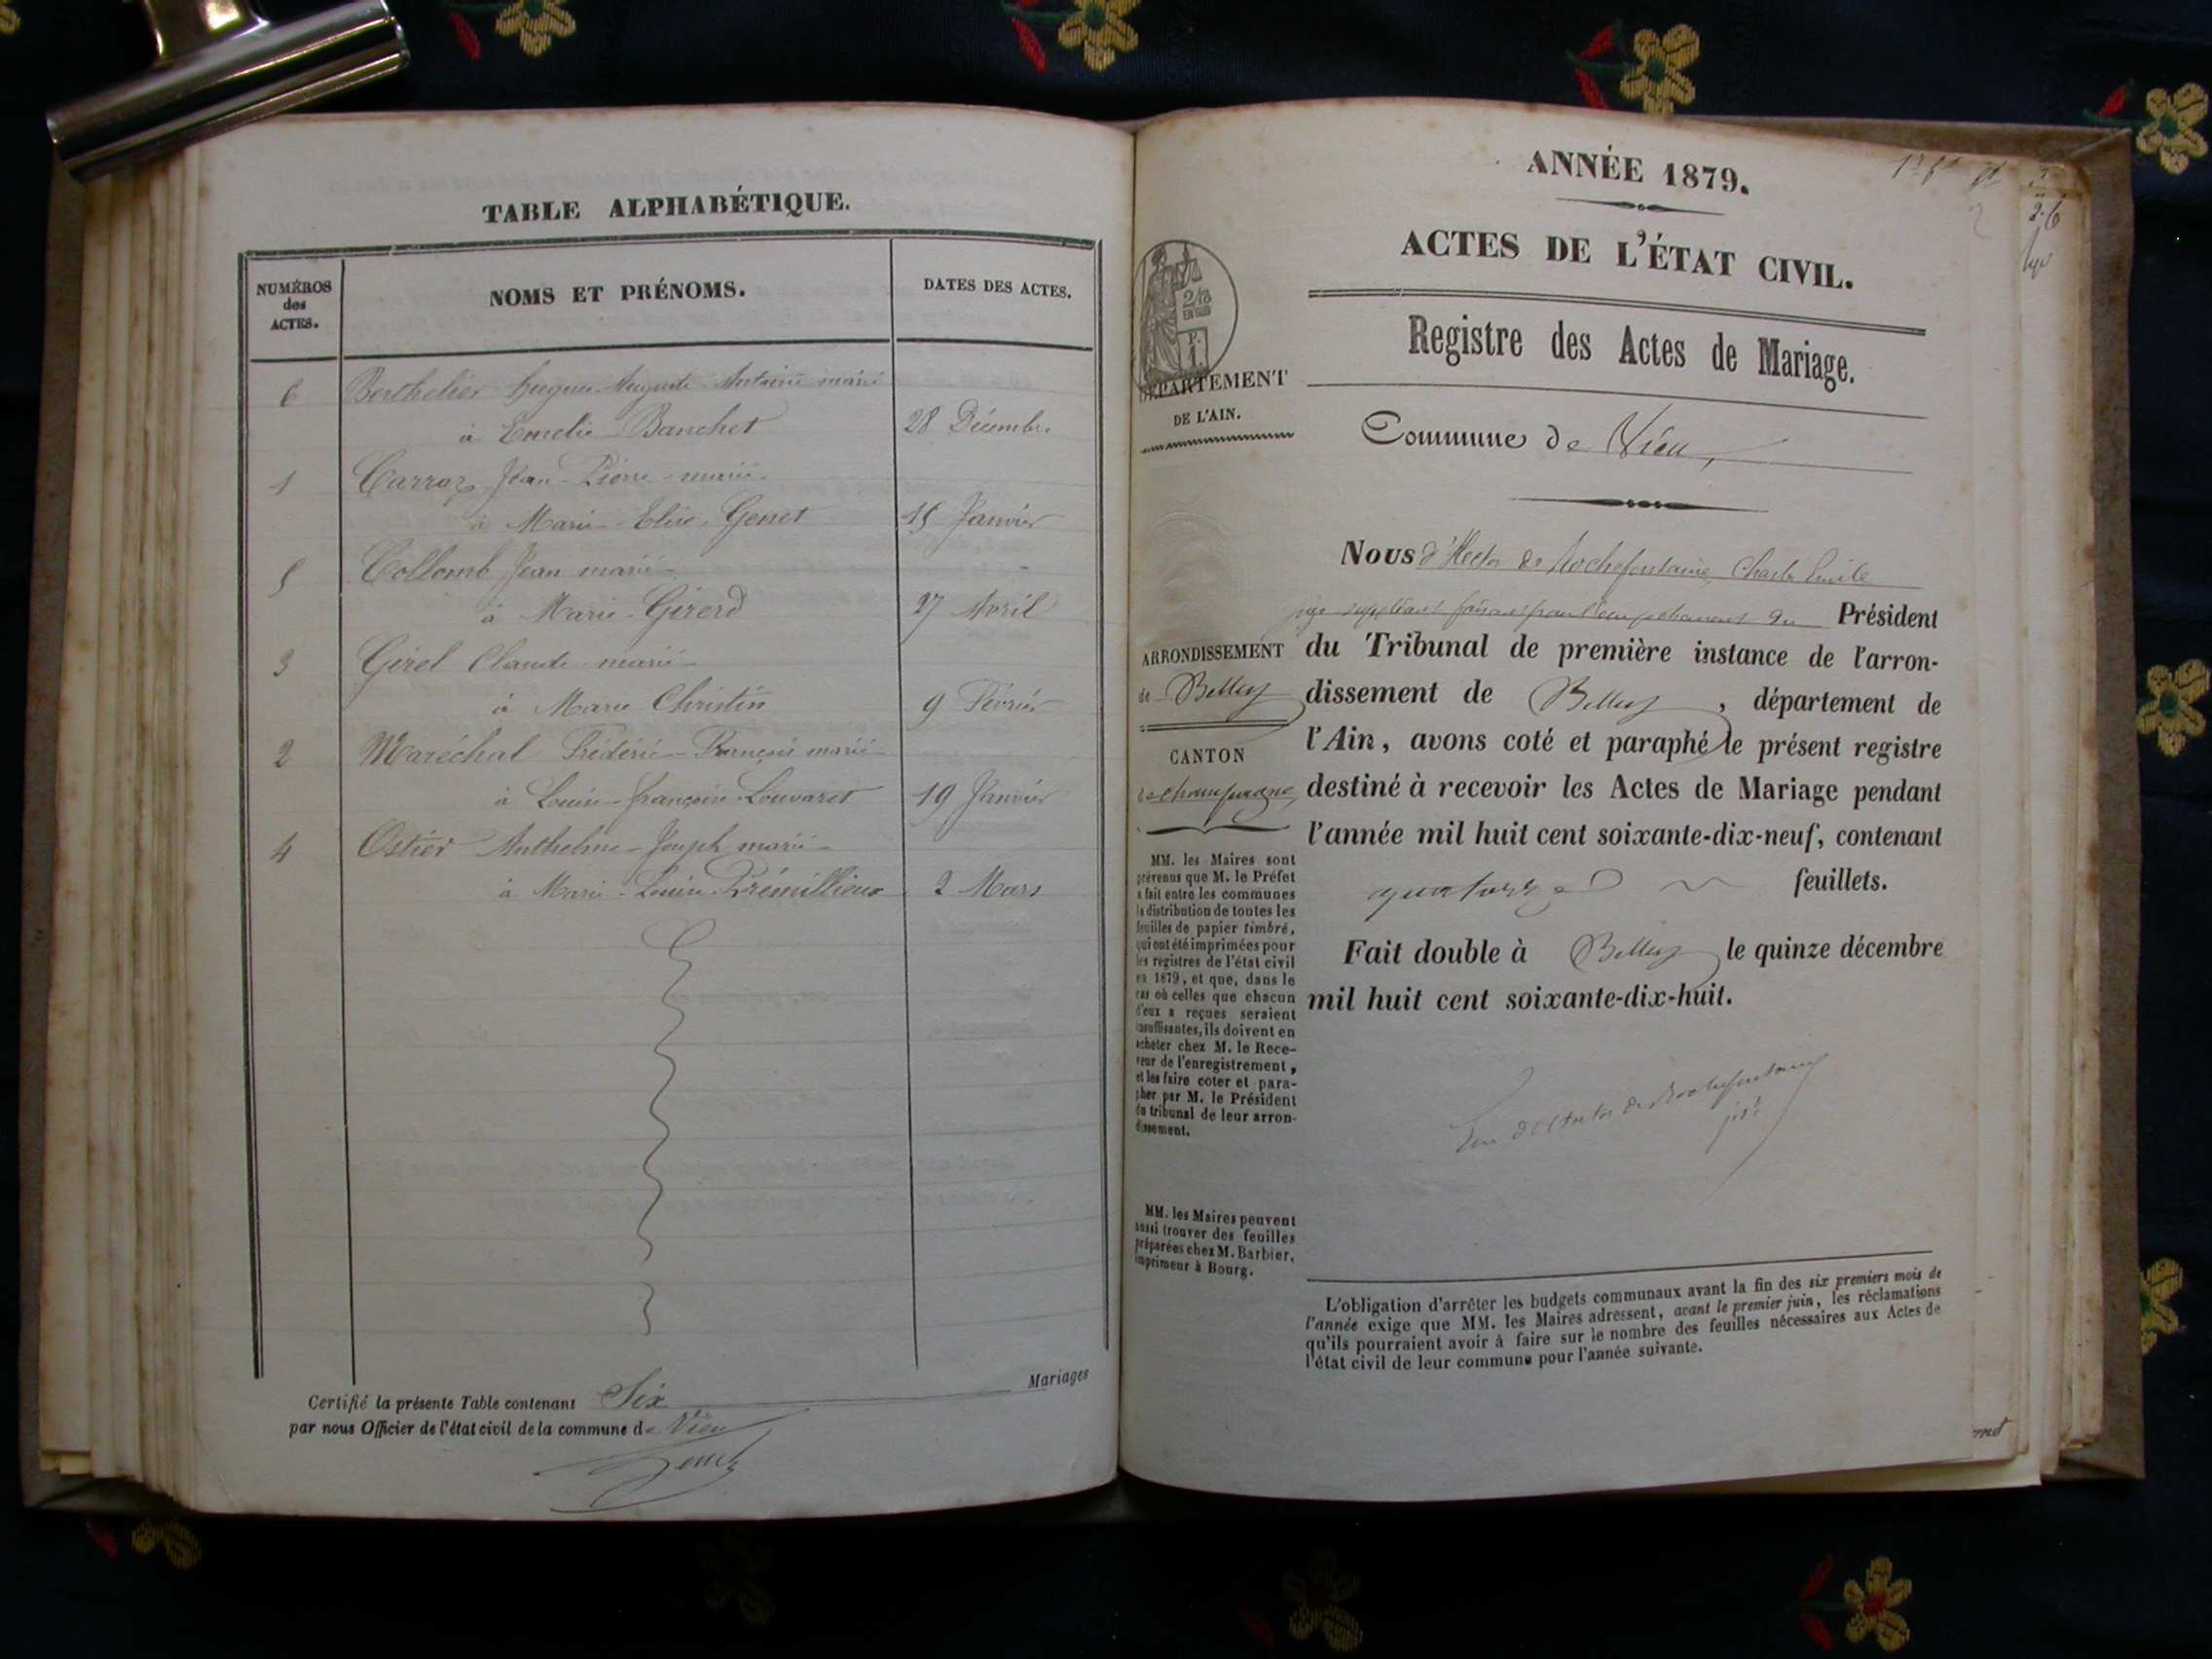 TABLE ALPHABÉTIQUE.
NUMÉROS
des
ACTES.
NOMS ET PRÉNOMS.
DATES DES ACTES.
6 Berthelier Auguste Antoine marié
à Emélie Banchet 28 Décembre
1 Carraz Jean Pierre marié
à Marie Elise Genet 15 Janvier
5 Collomb Jean marié
à Marie Girerd 27 Avril
3 Girel Claude marié
à Marie Christin 9 Février
2 Maréchal Frédéric François marié
à Louise françoise Louvaret 19 Janvier
4 Ostier Anthelme Joseph marié
à Marie Louise Prémillieux 2 Mars
Certifié la présente Table contenant Six Mariages
par nous Officier de l'état civil de la commune de Vieu
ANNÉE 1879.
ACTES DE L'ÉTAT CIVIL.
Registre des Actes de Mariage.
DÉPARTEMENT
DE L'AIN.
Commune de Vieu,
ARRONDISSEMENT
de Belley
CANTON
de champagne
MM. les Maires sont
prévenus que M. le Préfet
a fait entre les communes
la distribution de toutes les
feuilles de papier timbré,
qui ont été imprimées pour
les registres de l'état civil
en 1879, et que, dans le
cas où celles que chacun
d'eux a reçues seraient
insuffisantes, ils doivent en
acheter chez M. le Rece-
veur de l'enregistrement,
et les faire coter et para-
pher par M. le Président
du tribunal de leur arron-
dissement.
MM. les Maires peuvent
aussi trouver des feuilles
préparées chez M. Barbier,
imprimeur à Bourg.
Nous d'Hector de Rochefontaine, Charles Emile
juge suppléant faisant pour l'empêchement du Président
du Tribunal de première instance de l'arron-
dissement de Belley, département de
l'Ain, avons coté et paraphé le présent registre
destiné à recevoir les Actes de Mariage pendant
l'année mil huit cent soixante-dix-neuf, contenant
quatorze feuillets.
Fait double à Belley le quinze décembre
mil huit cent soixante-dix-huit.
L'obligation d'arrêter les budgets communaux avant la fin des six premiers mois de
l'année exige que MM. les Maires adressent, avant le premier juin, les réclamations
qu'ils pourraient avoir à faire sur le nombre des feuilles nécessaires aux Actes de
l'état civil de leur commune pour l'année suivante.